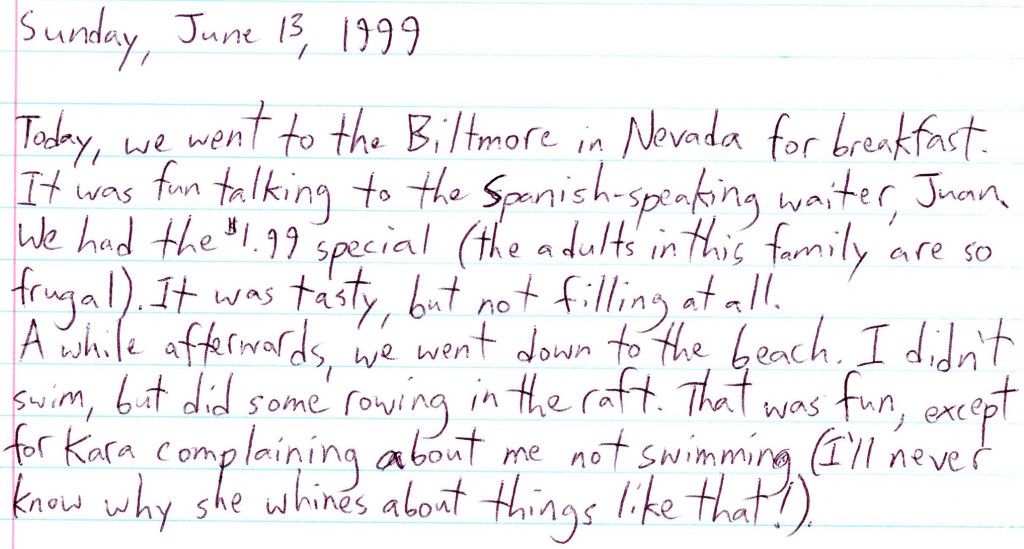 Sunday, June 13, 1999
Today, we went to the Biltmore in Nevada for breakfast.
It was fun talking to the Spanish-speaking waiter, Juan.
We had the $1.99 special (the adults in this family are so
frugal). It was tasty, but not filling at all.
A while afterwards, we went down to the beach. I didn't
swim, but did some rowing in the raft. That was fun, except
for Kara complaining about me not swimming (I'll never
know why she whines about things like that!).